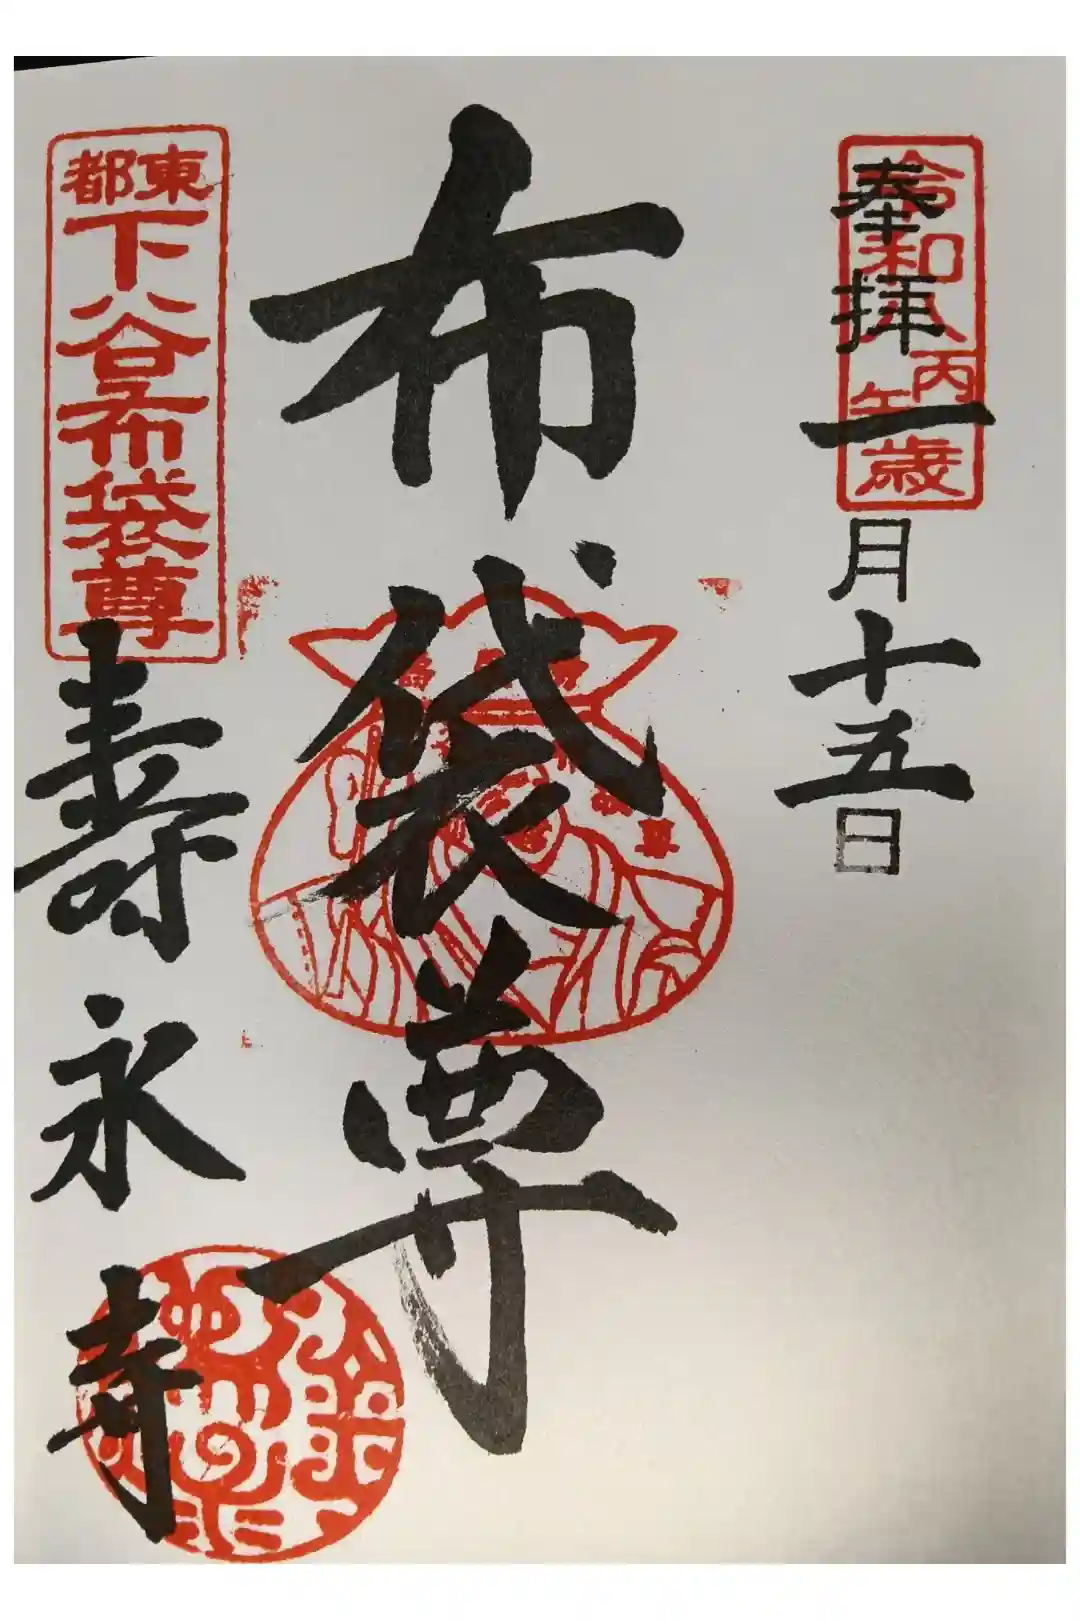 奉拝
令和八丙午歳
一月十五日
布袋尊
東都
下谷布袋尊
壽永寺